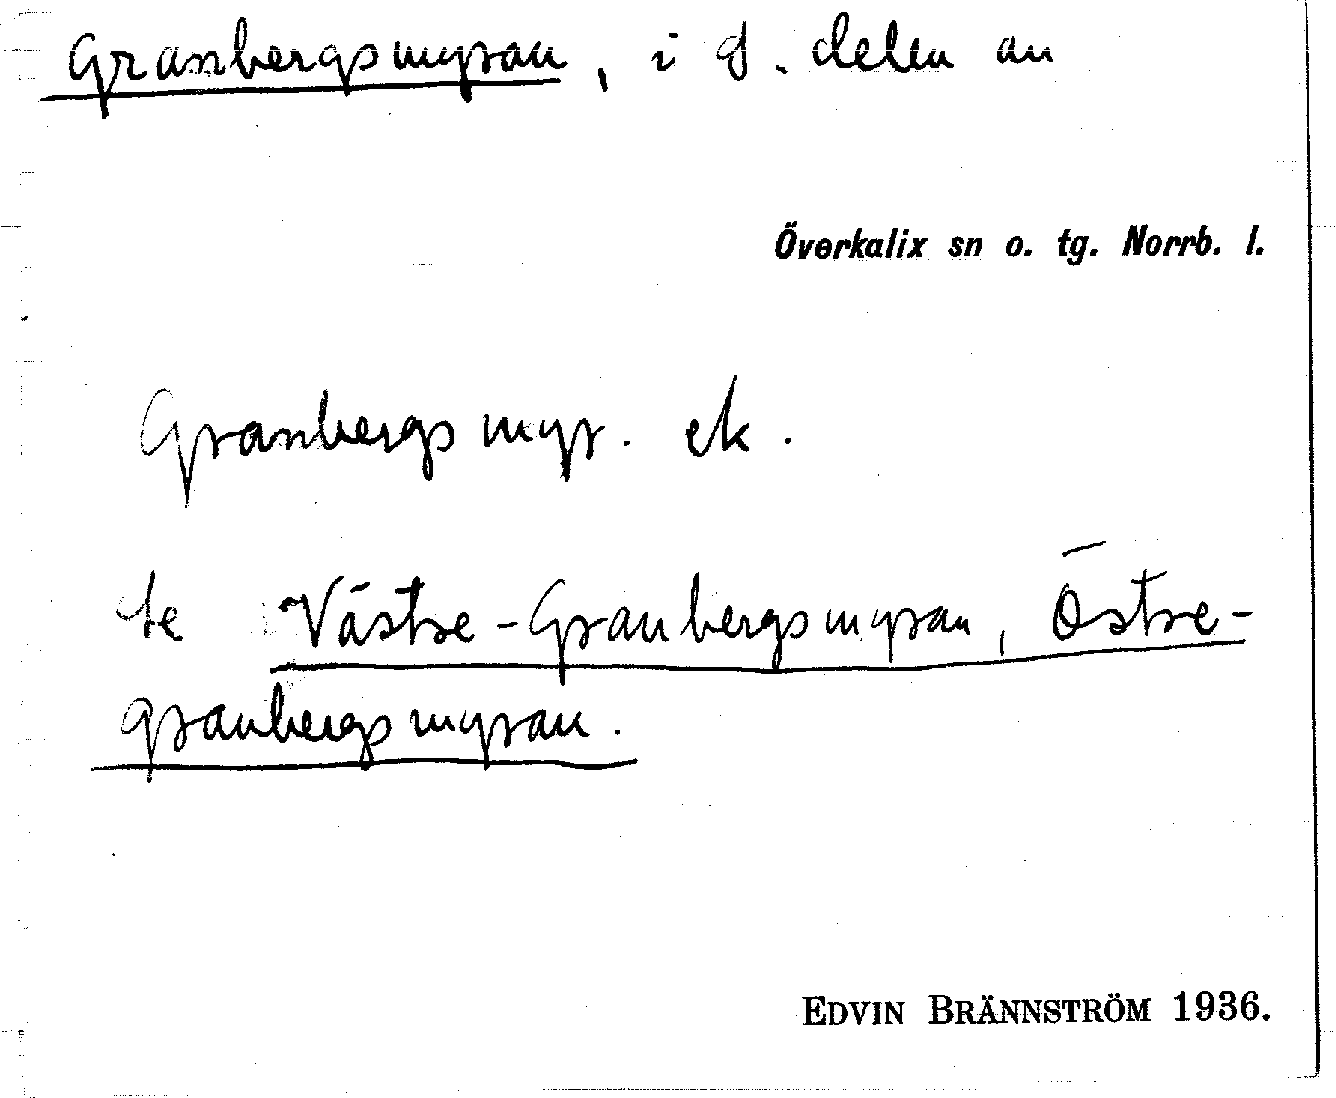 Granbergsmyran, i d. delen an
Överkalix sn o. tg. Norrb. l.
Granbergsmyr. ek.
se Västre-Granbergsmyran, Östre-
granbergsmyran.
EDVIN BRÄNNSTRÖM 1936.